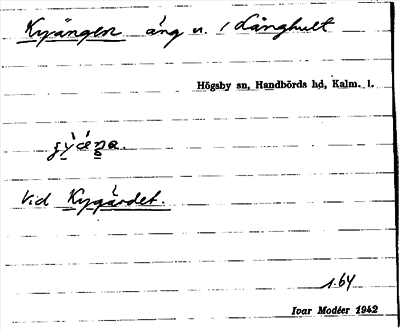 Kyängen äng u. / Långhult
Högsby sn, Handbörds hd, Kalm. l.
Vid Kygärdet.
1.64
Ivar Modéer 1942